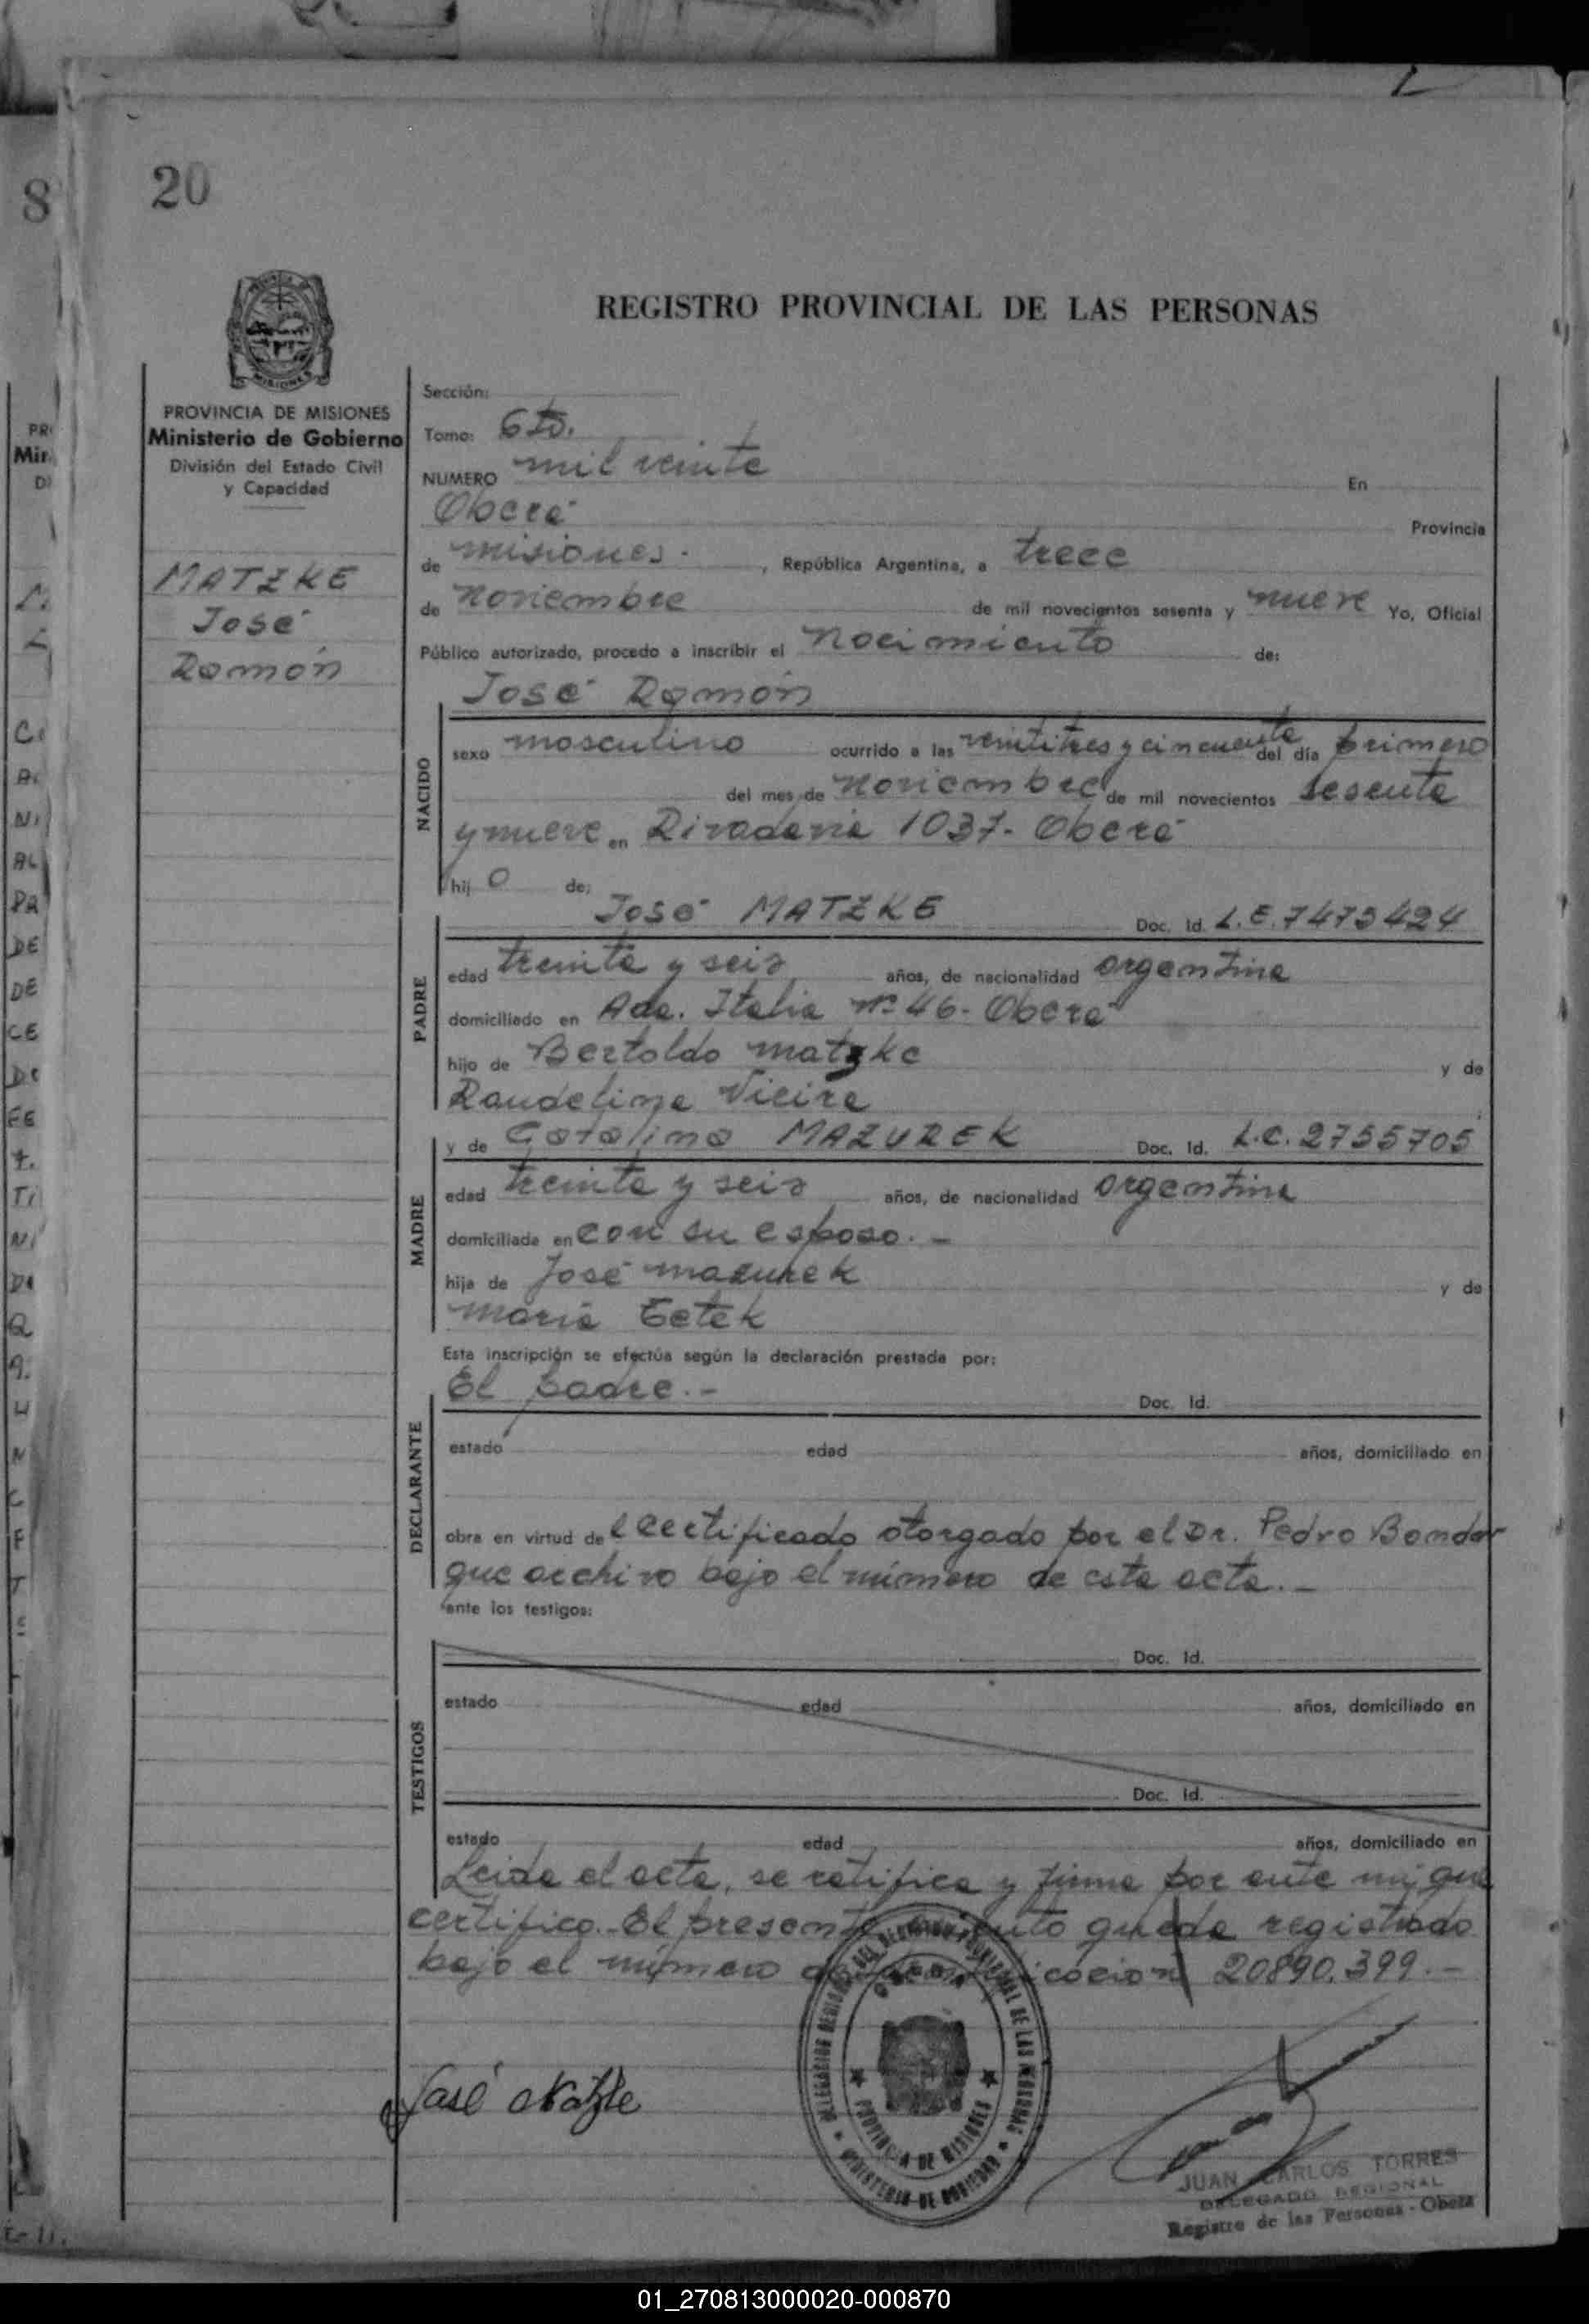 8
20
REGISTRO PROVINCIAL DE LAS PERSONAS
MISIONES
PROVINCIA DE MISIONES
Ministerio de Gobierno
División del Estado Civil
y Capacidad
MATZKE
José
Ramón
Sección:
Tomo: 6to.
NUMERO mil veinte En
Oberá Provincia
de misiones. , República Argentina, a trece
de Noviembre de mil novecientos sesenta y nueve Yo, Oficial
Público autorizado, procedo a inscribir el Nacimiento de:
José Ramón
NACIDO
sexo masculino ocurrido a las veintitres y cincuenta del día primero
del mes de Noviembre de mil novecientos sesenta
y nueve en Rivadavia 1037- Oberá
hij o de:
José MATZKE Doc. Id. L.E. 7473424
PADRE
edad treinta y seis años, de nacionalidad argentina
domiciliado en Ada. Italia Nº 46- Oberá
hijo de Bertoldo Matzke y de
Raudelina Vieira
y de Catalina MAZUREK Doc. Id. L.C. 2755705
MADRE
edad treinta y seis años, de nacionalidad argentina
domiciliada en con su esposo. -
hija de José Mazurek y de
María Tetek
Esta inscripción se efectúa según la declaración prestada por:
El padre.- Doc. Id.
DECLARANTE
estado edad años, domiciliado en
obra en virtud de l certificado otorgado por el Dr. Pedro Bondar
que archivo bajo el número de esta acta.-
ante los testigos:
TESTIGOS
Doc. Id.
estado edad años, domiciliado en
Doc. Id.
estado edad años, domiciliado en
Leida el acta, se ratifica y firma por ante mi, que
certifico.- El presente queda registrado
bajo el número 20890.399.-
José Matzke
PROVINCIA DE MISIONES
MINISTERIO DE GOBIERNO
JUAN CARLOS TORRES
DELEGADO REGIONAL
Registro de las Personas - Oberá
01_270813000020-000870